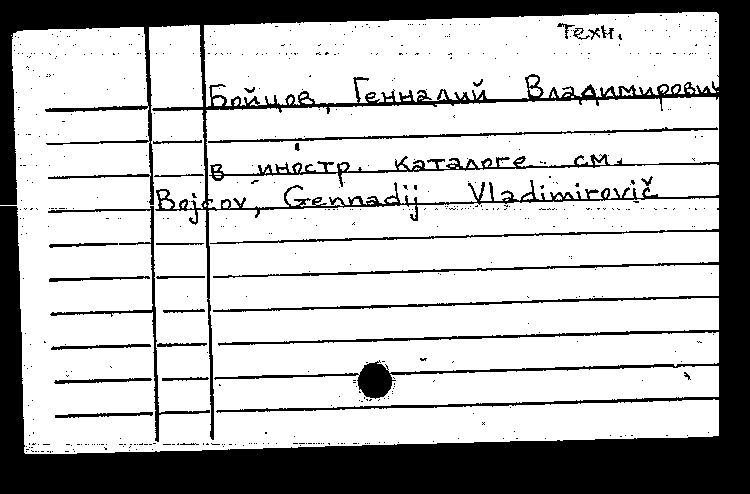 Техн.
Бойцов, Геннадий Владимирович
в иностр. каталоге см.
Bojcov, Gennadij Vladimirovič